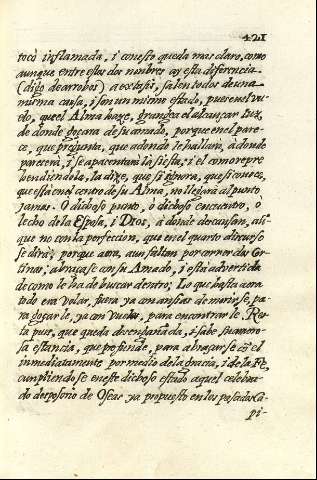 421
tocò inflamada, i con esto queda mas claro, como
aunque entre estos dos nombres ay esta diferencia
(digo de arrobos) a ecstasi, salen todos de una
misma causa, i son un mismo estado, pues en el vue
lo, que el Alma haze, grangea el alcançar luz,
de donde goçara de su amado, porque en el pare-
ce, que pregunta, que adonde le hallarà, à donde
parecerà, i se apacentarà la siesta; i el como repre
hendiendola, la dize, que si ignora, que si conoce,
que està en el centro de su Alma, no llegarà al punto
jamas. O dichoso punto, ò dichoso encuentro, o
lecho de la Esposa, i Dios, à donde descansan, aũ
que no con la perfeccion, que en el quarto discurso
se dirà; porque aora, aun faltan por correr dos Cor-
tinas; abraçase con su Amado, i està advertida
de como le ha de buscar dentro; Lo que hasta aora
todo era volar, fuera, ya con ansias de morirse, pa-
ra goçarle, ya con vuelos, para encontrarle. Res-
ta pues, que queda desengañada, i sabe su amoro-
sa estancia, que profunde, para abraçarse cõ el
inmediatamente por medio de la gracia, i de la Fe,
cumpliendose en este dichoso estado aquel celebra-
do desposorio de Oseas, ya propuesto en los pasados Ca-
pi-